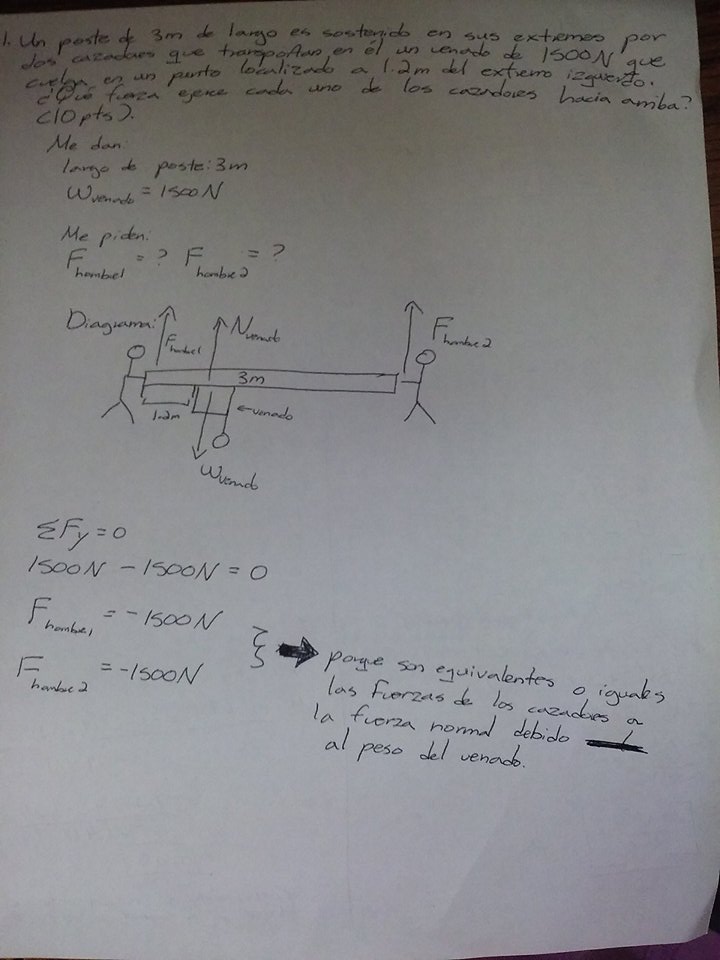 1. Un poste de 3m de largo es sostenido en sus extremos por
dos cazadores que transportan en él un venado de 1500N que
cuelga en un punto localizado a 1.2m del extremo izquierdo.
¿Qué fuerza ejerce cada uno de los cazadores hacia arriba?
(10 pts).
Me dan:
largo de poste: 3m
Wvenado = 1500N
Me piden:
Fhombre1 = ? Fhombre2 = ?
Diagrama:
Fhombre1
Nvenado
Fhombre2
3m
1.2m
←venado
Wvenado
ΣFy = 0
1500N - 1500N = 0
Fhombre1 = -1500N
Fhombre2 = -1500N
porque son equivalentes o iguales
las fuerzas de los cazadores a
la fuerza normal debido
al peso del venado.